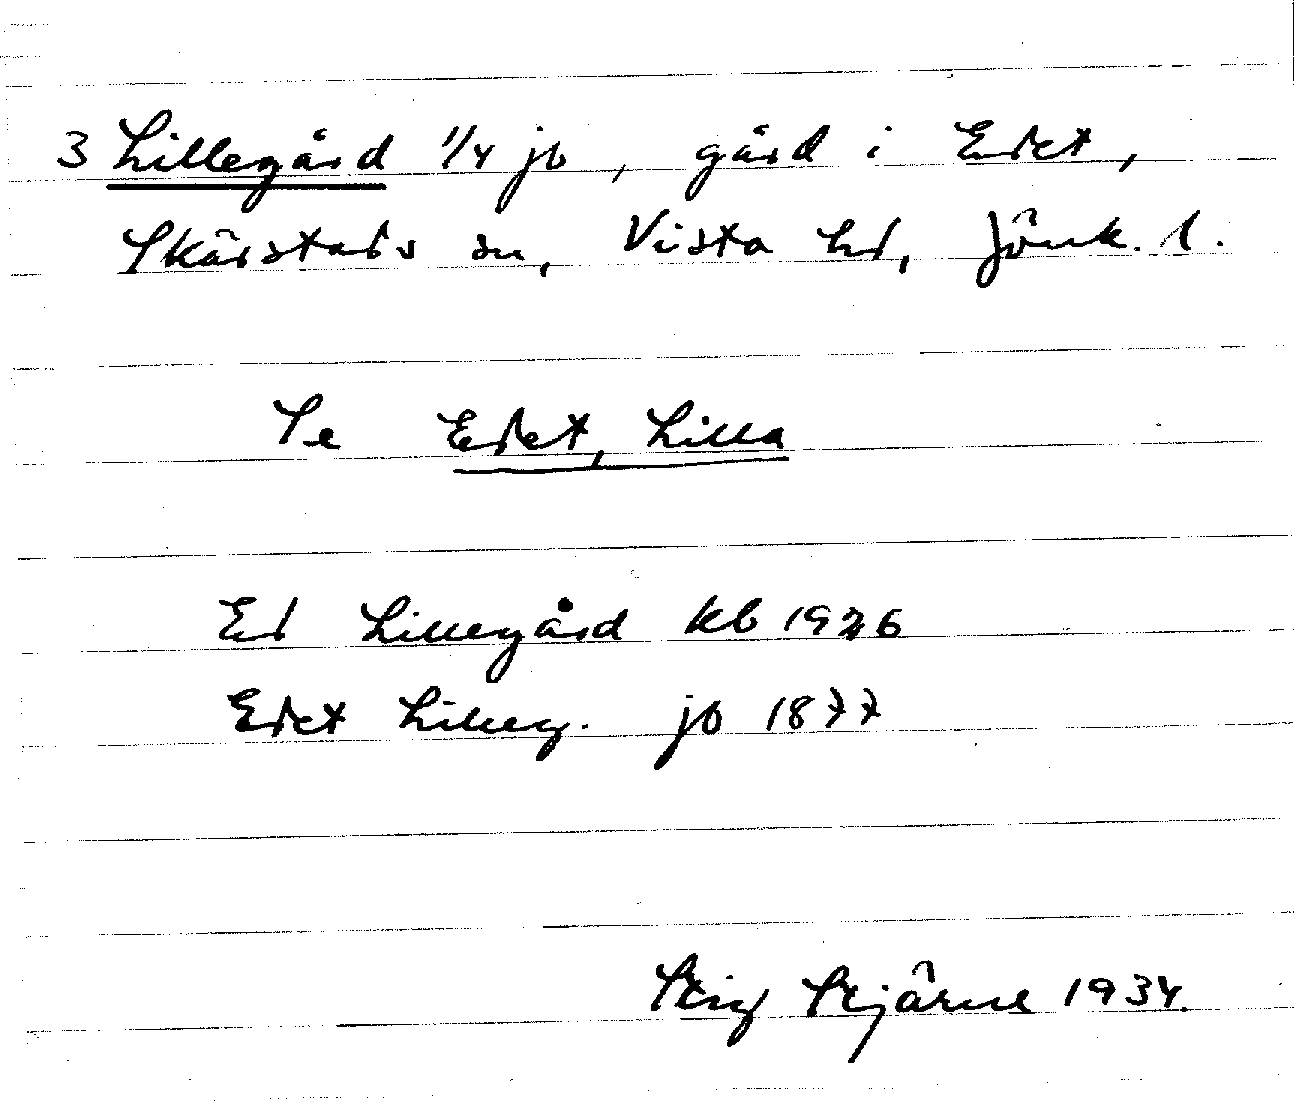 3 Lillegård 1/4 jb, gård i Edet,
Skärstads sn, Vista hd, Jönk. l.
Se Edet, Lilla
Ed Lillegård kb 1926
Edet Lilleg. jb 1877
Stig Stjärne 1934.